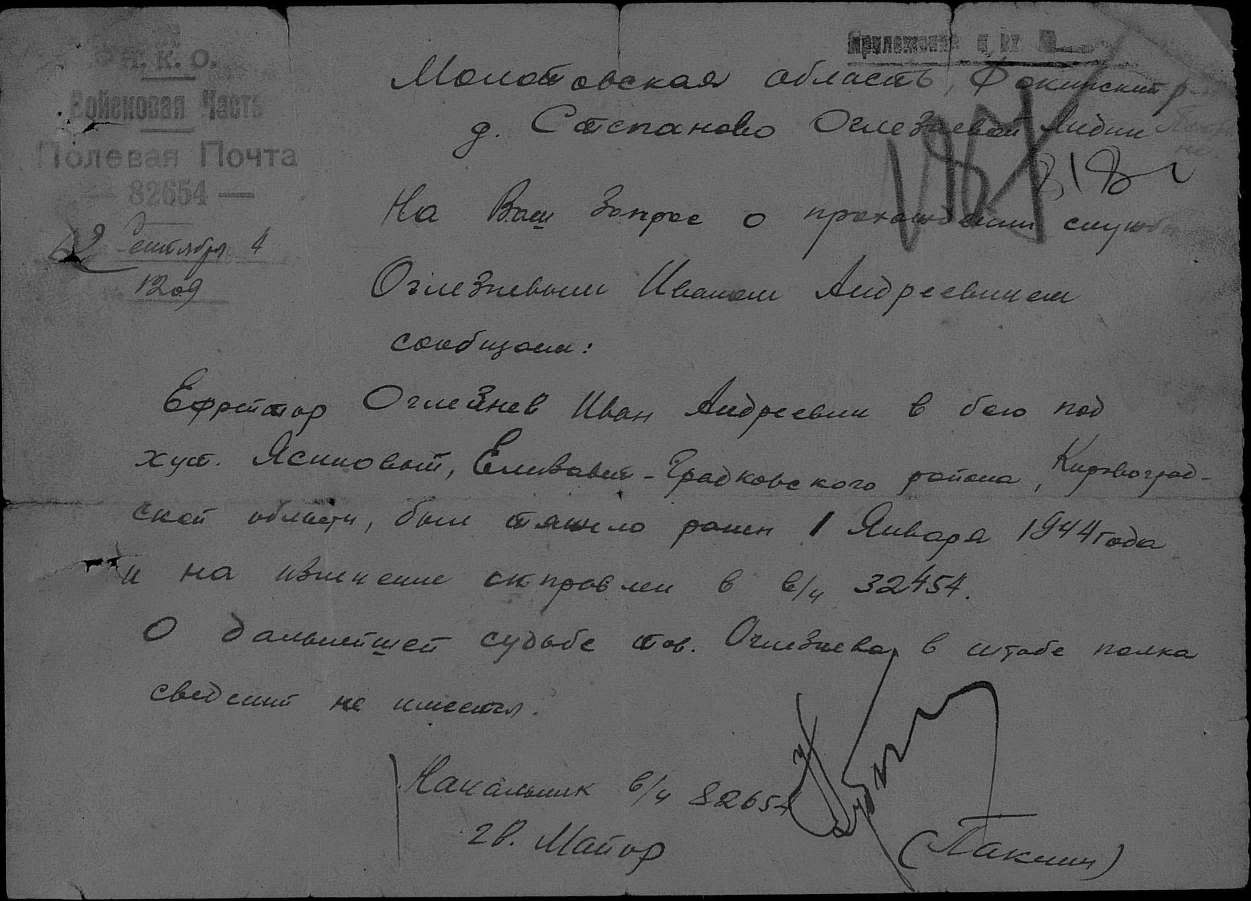 Н. К. О.
Войсковая Часть
Полевая Почта
— 82654 —
Сентября 4
1209
Приложение
Молотовская область, Фокинский р
д. Степаново Оглезневой Лидии
На Ваш запрос о прохождении службы
Оглезневым Иваном Андреевичем
сообщаем:
Ефрейтор Оглезнев Иван Андреевич в бою под
хут. Ясиноват, Елисавет-Градковского района, Кировоград-
ской области, был тяжело ранен 1 Января 1944 года
и на излечение отправлен в в/ч 32454.
О дальнейшей судьбе тов. Оглезнева в штабе полка
сведений не имеется.
Начальник в/ч 82654
гв. Майор